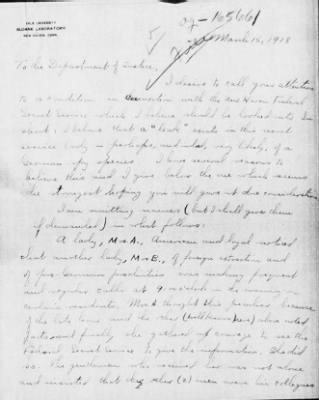 YALE UNIVERSITY
SLOANE LABORATORY
NEW HAVEN, CONN.
March 15, 1918
To the Department of Justice,
I desire to call your attention
to a condition in connection with the New Haven Federal
Secret Service which I believe should be looked into. In
short, I believe that a "leak" exists in this secret
service body or perhaps, and what, very likely, of a
German spy species. I have several reasons to
believe this and I give below the one which seems
the strongest hoping you will give it due consideration.
I am omitting names (but I shall give them
if demanded) in what follows:
A lady, Mrs A., American and loyal noticed
that another lady, Mrs B., of foreign extraction and
of pro-German proclivities was making frequent
and regular calls at 9 o'clock in the evening on
certain
Mrs A thought this peculiar because
of the late time and the other
noted
facts and finally she gathered up courage to see the
Federal Secret Service to give the information. She did
so. The gentleman who received her was not alone
and insisted that the other (2) men were his colleagues